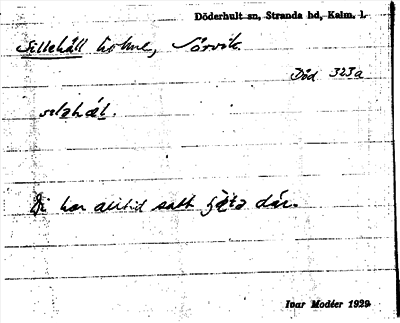 Döderhult sn, Stranda hd, Kalm. l.
Sillehåll holme, Sörvik
Död 323a
Di har alltid satt där.
Ivar Modéer 1929